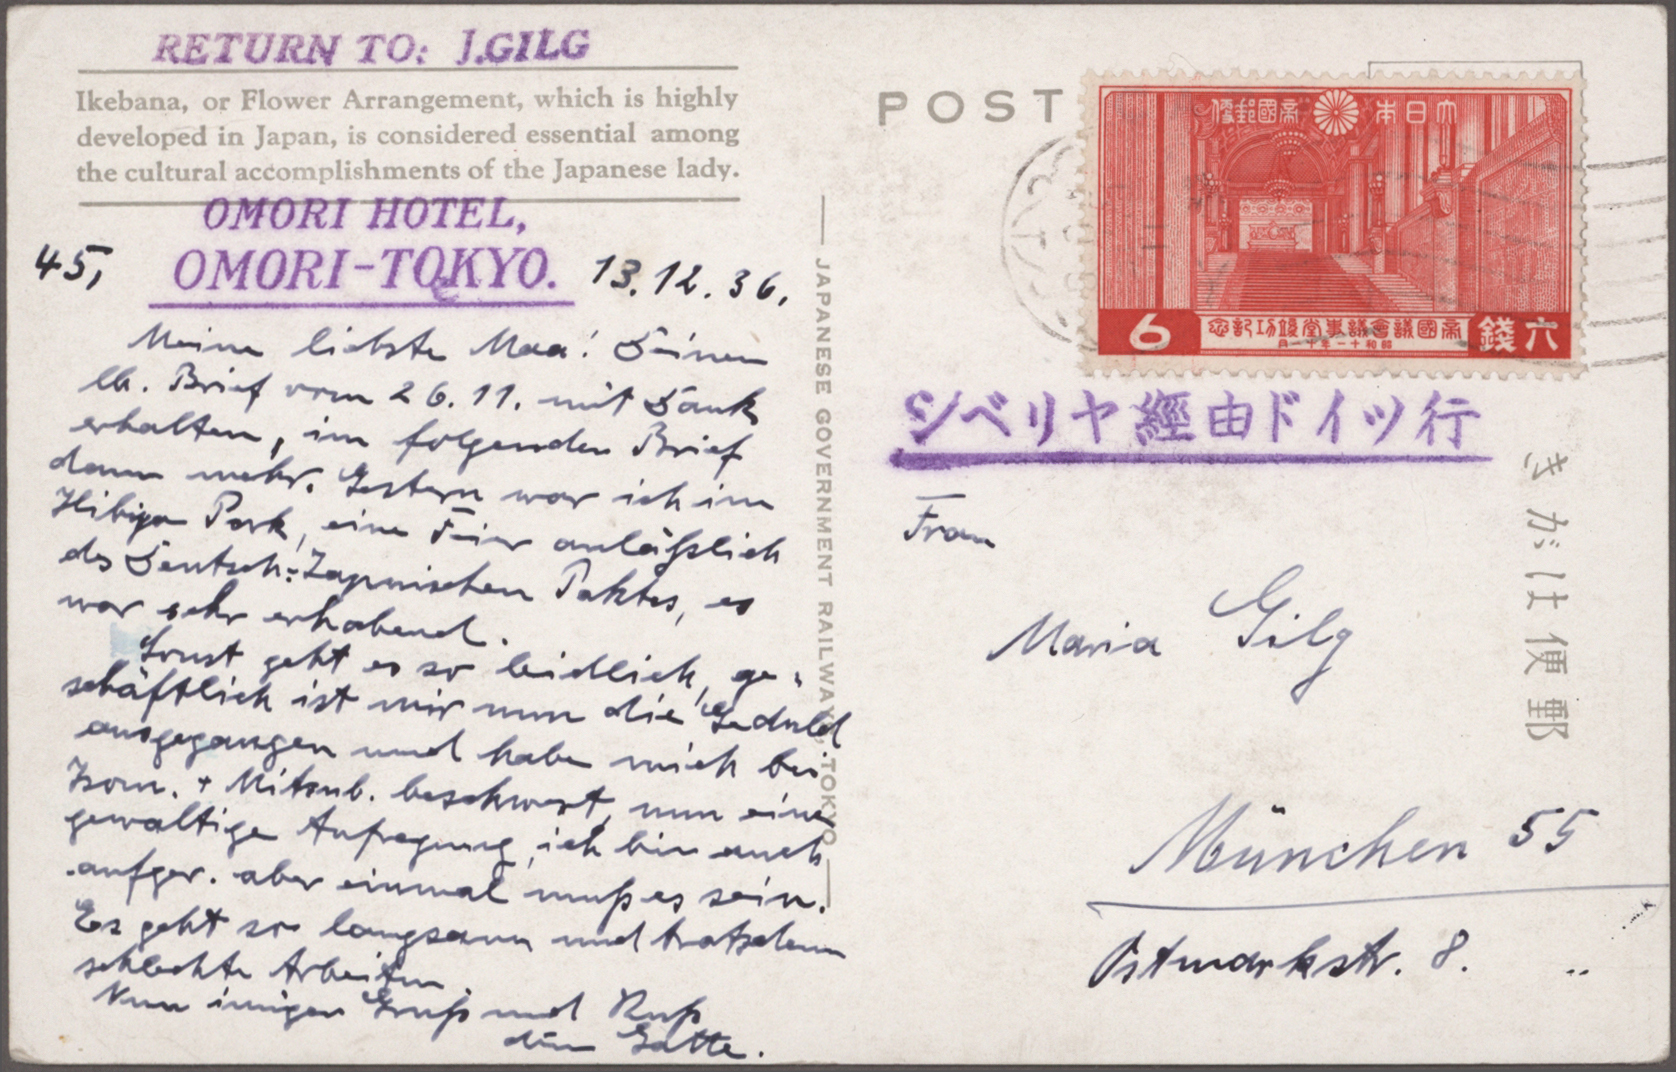 RETURN TO: J.GILG
Ikebana, or Flower Arrangement, which is highly
developed in Japan, is considered essential among
the cultural accomplishments of the Japanese lady.
OMORI HOTEL,
OMORI-TOKYO.
45, 13.12.36.
Meine liebste Maa! Deinen
lb. Brief vom 26.11. mit Dank
erhalten, im folgenden Brief
dann mehr. Gestern war ich im
Hibiya Park, eine Feier anläßlich
des Deutsch-Japanischen Paktes, es
war sehr erhabend.
Sonst geht es so leidlich, ge-
schäftlich ist mir nun die Geduld
ausgegangen und habe mich bei
+ Mitsub. beschwert, nun eine
gewaltige Aufregung, ich bin auch
aufger. aber einmal muß es sein.
Es geht so langsam und trotzdem
schlechte Arbeiten.
Nun innigen Gruß und Kuß
dein Gatte.
JAPANESE GOVERNMENT RAILWAYS, TOKYO
POST
大日本帝國郵便
帝國議會議事堂竣功記念
昭和十一年十一月
6
六錢
シベリヤ經由ドイツ行
郵便はがき
Frau
Maria Gilg
München 55
Ostmarkstr. 8.